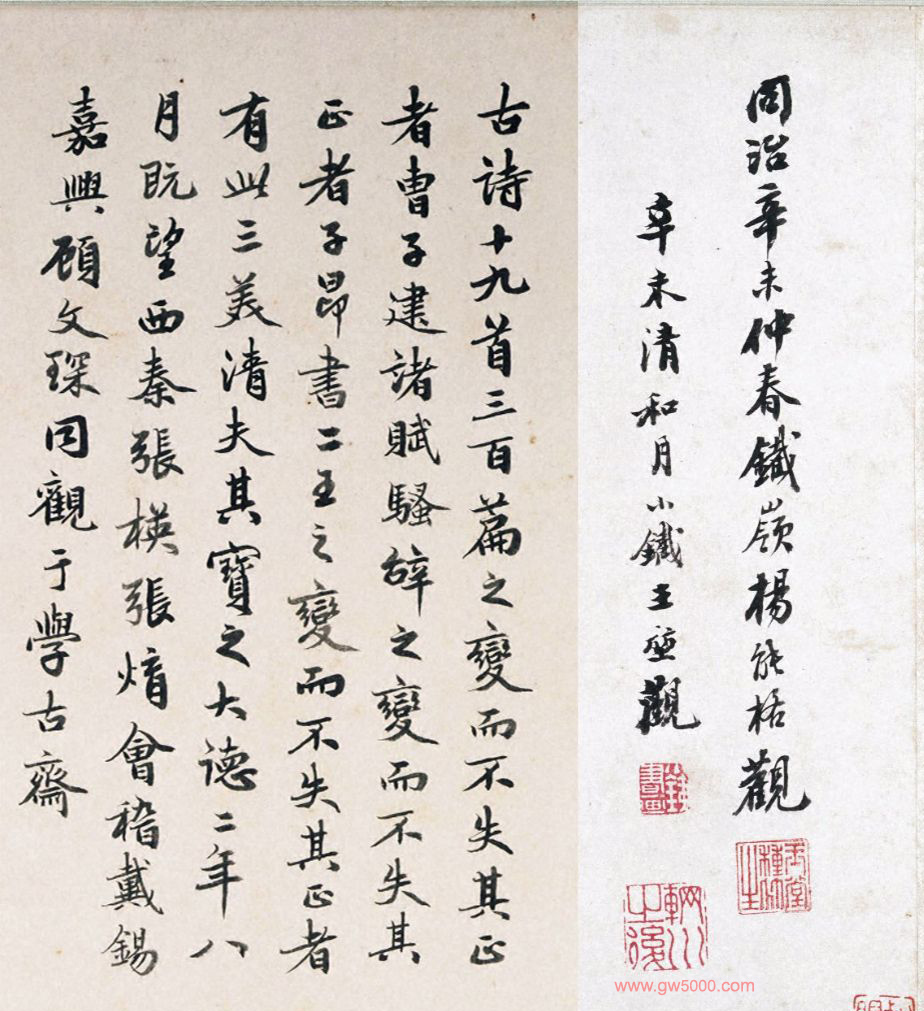 同治辛未仲春鐵嶺楊能格觀
辛未清和月小鐵王堃觀
輞川之後
古詩十九首三百篇之變而不失其正
者曹子建諸賦騷辭之變而不失其
正者子昂書二王之變而不失其正者
有此三美清夫其寶之大德二年八
月既望西秦張楧張焴會稽戴錫
嘉興顧文琛同觀于學古齋
www.gw5000.com